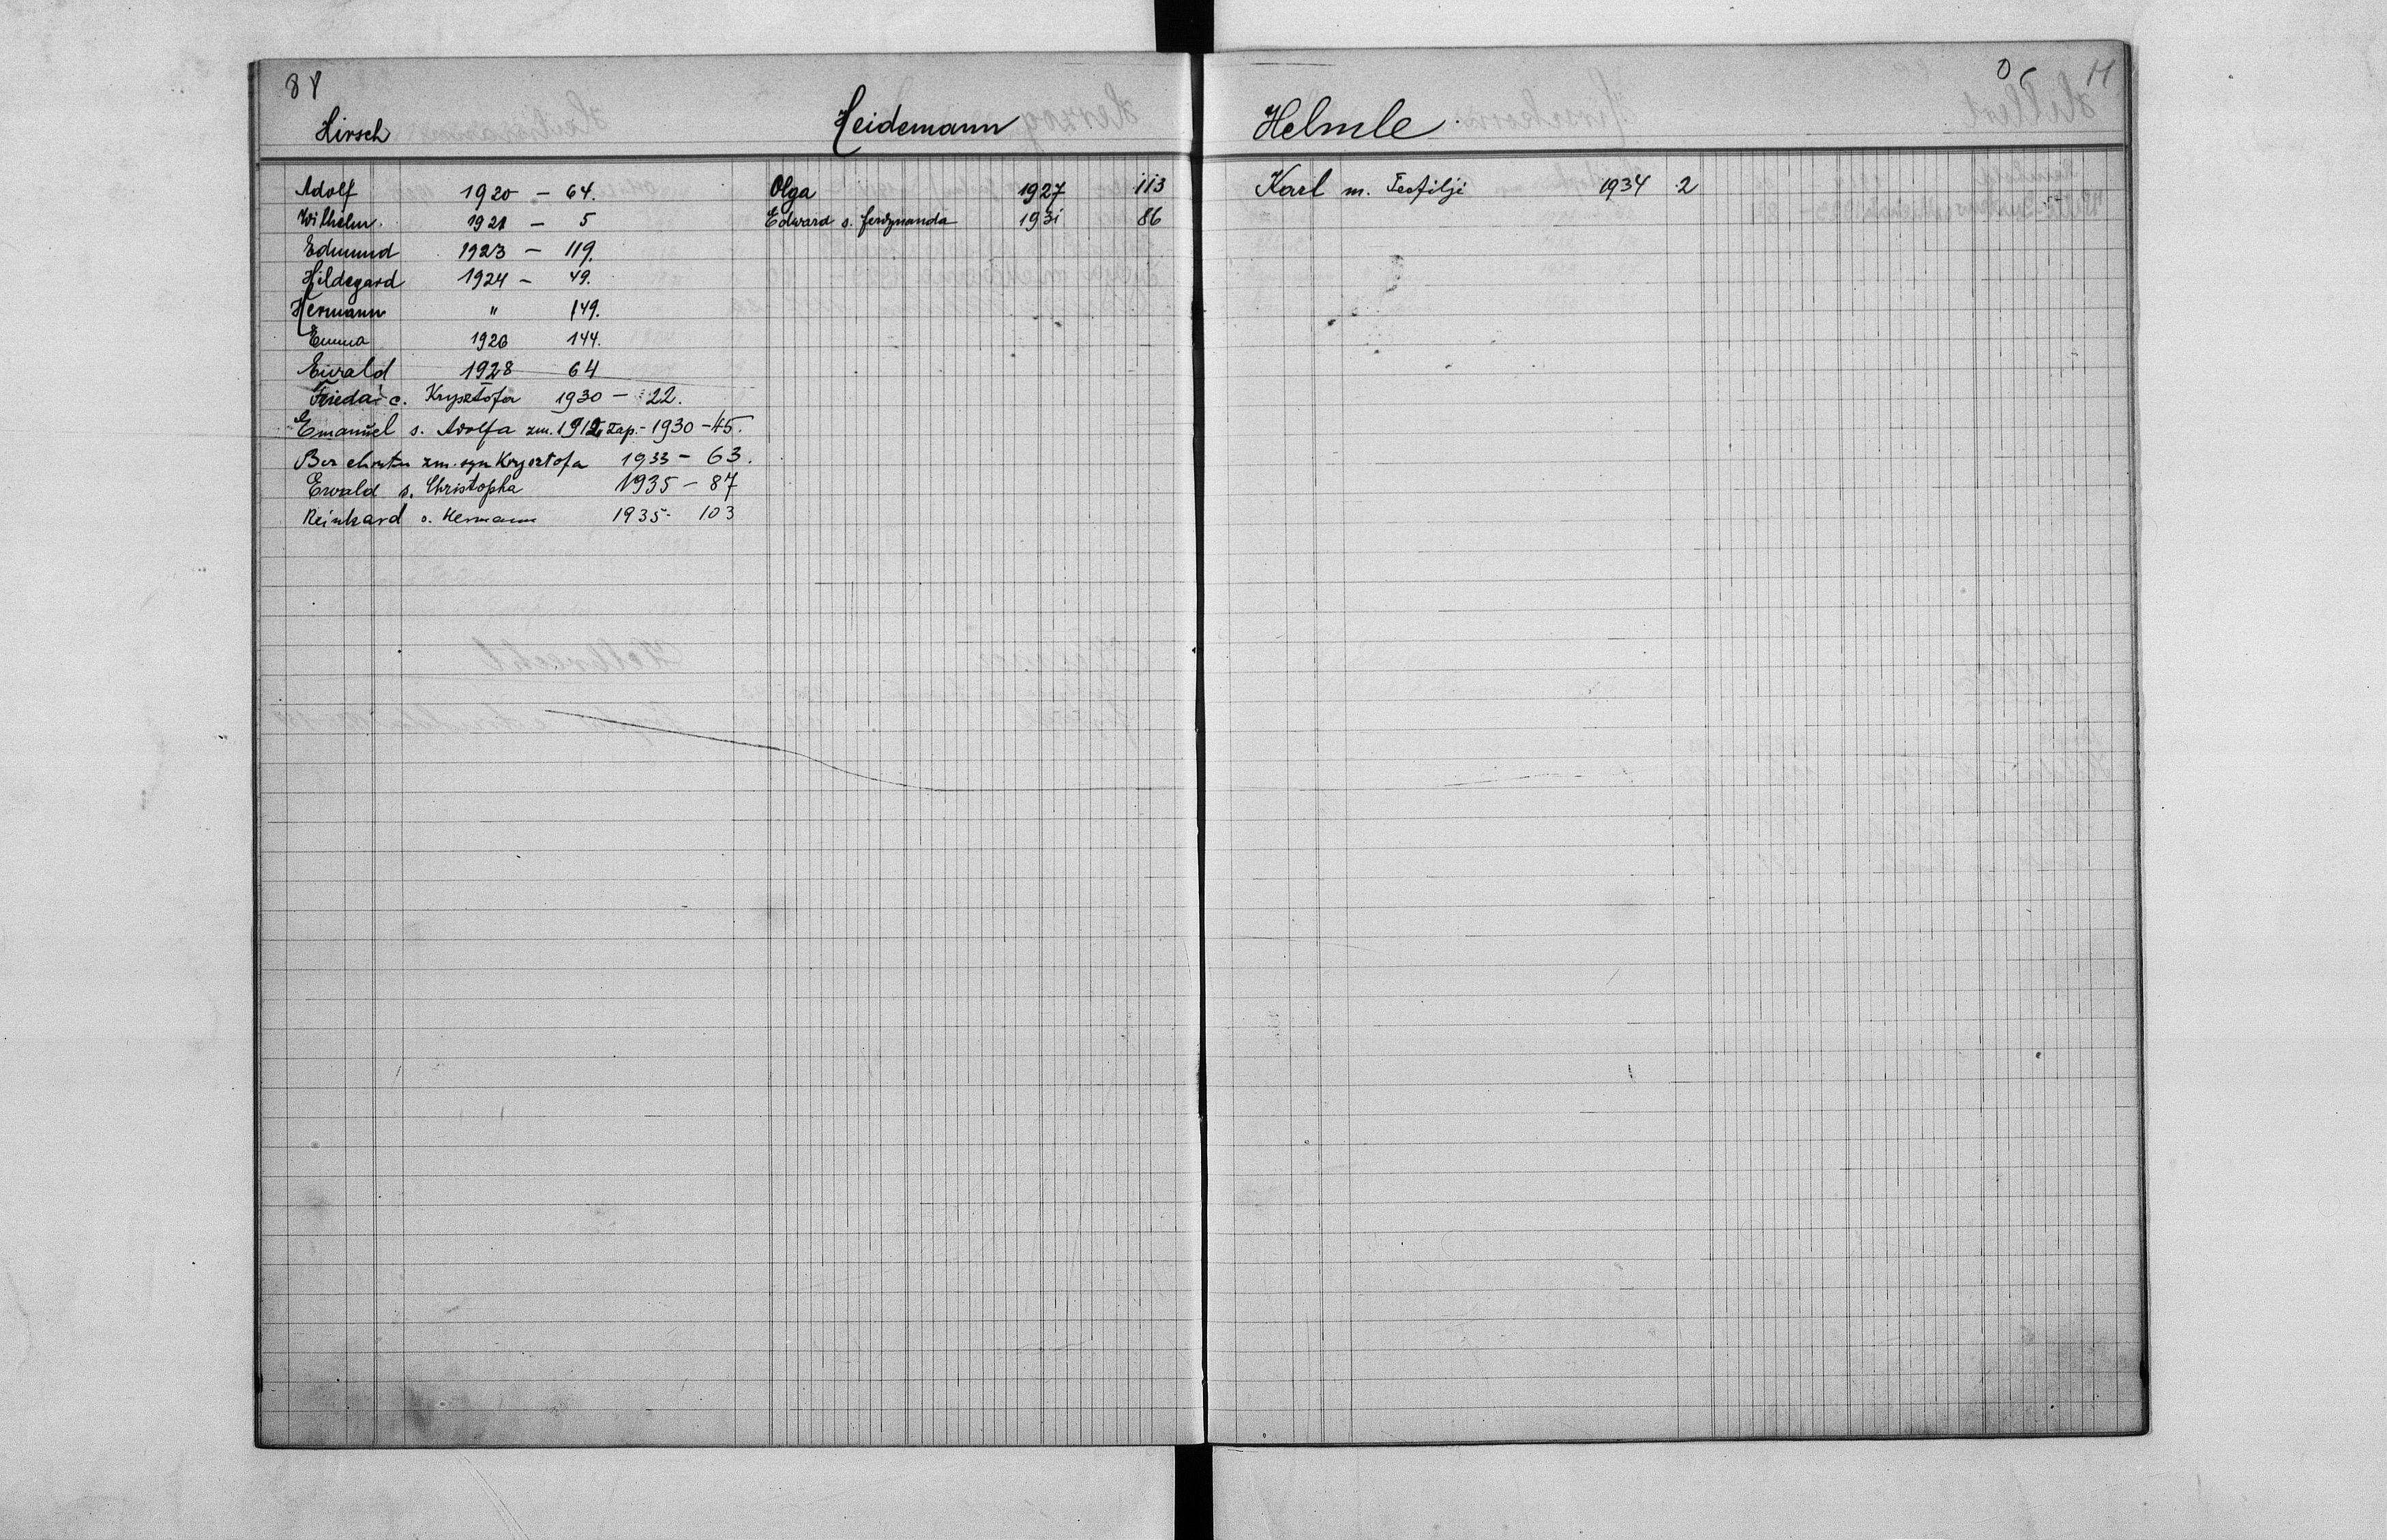 88
Hirsch
Adolf 1920 - 64.
Wilhelm. 1921 - 5
Edmund 1923 - 119.
Hildegard 1924 - 49.
Hermann " 149.
Emma 1926 144.
Ewald 1928 64
Frieda c. Krysztofa 1930 - 22.
Emanuel s. Adolfa zm. zap. - 1930 - 45.
Bez chrztu zm. syn Krysztofa 1933 - 63.
Ewald s. Christopha 1935 - 87
Reinhard s. Hermann 1935 - 103
Heidemann
Olga 1927 113
Edward s. Ferdynanda 1931 86
H
Helmle
Karl m. Teofilji 1934 2